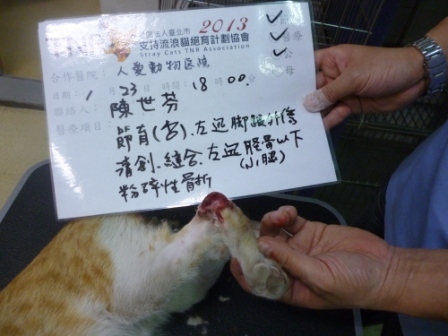 2013
TNR 社團法人臺北市
支持流浪貓絕育計劃協會
Stray Cats TNR Association
醫療
公母
合作醫院: 人愛動物医院
日期: 1月23日 時間: 18:00
聯絡人: 陳世芬
醫療項目: 節育(公), 左後脚踝外傷
清創. 縫合. 左後脛骨以下
(小腿)
粉碎性骨折